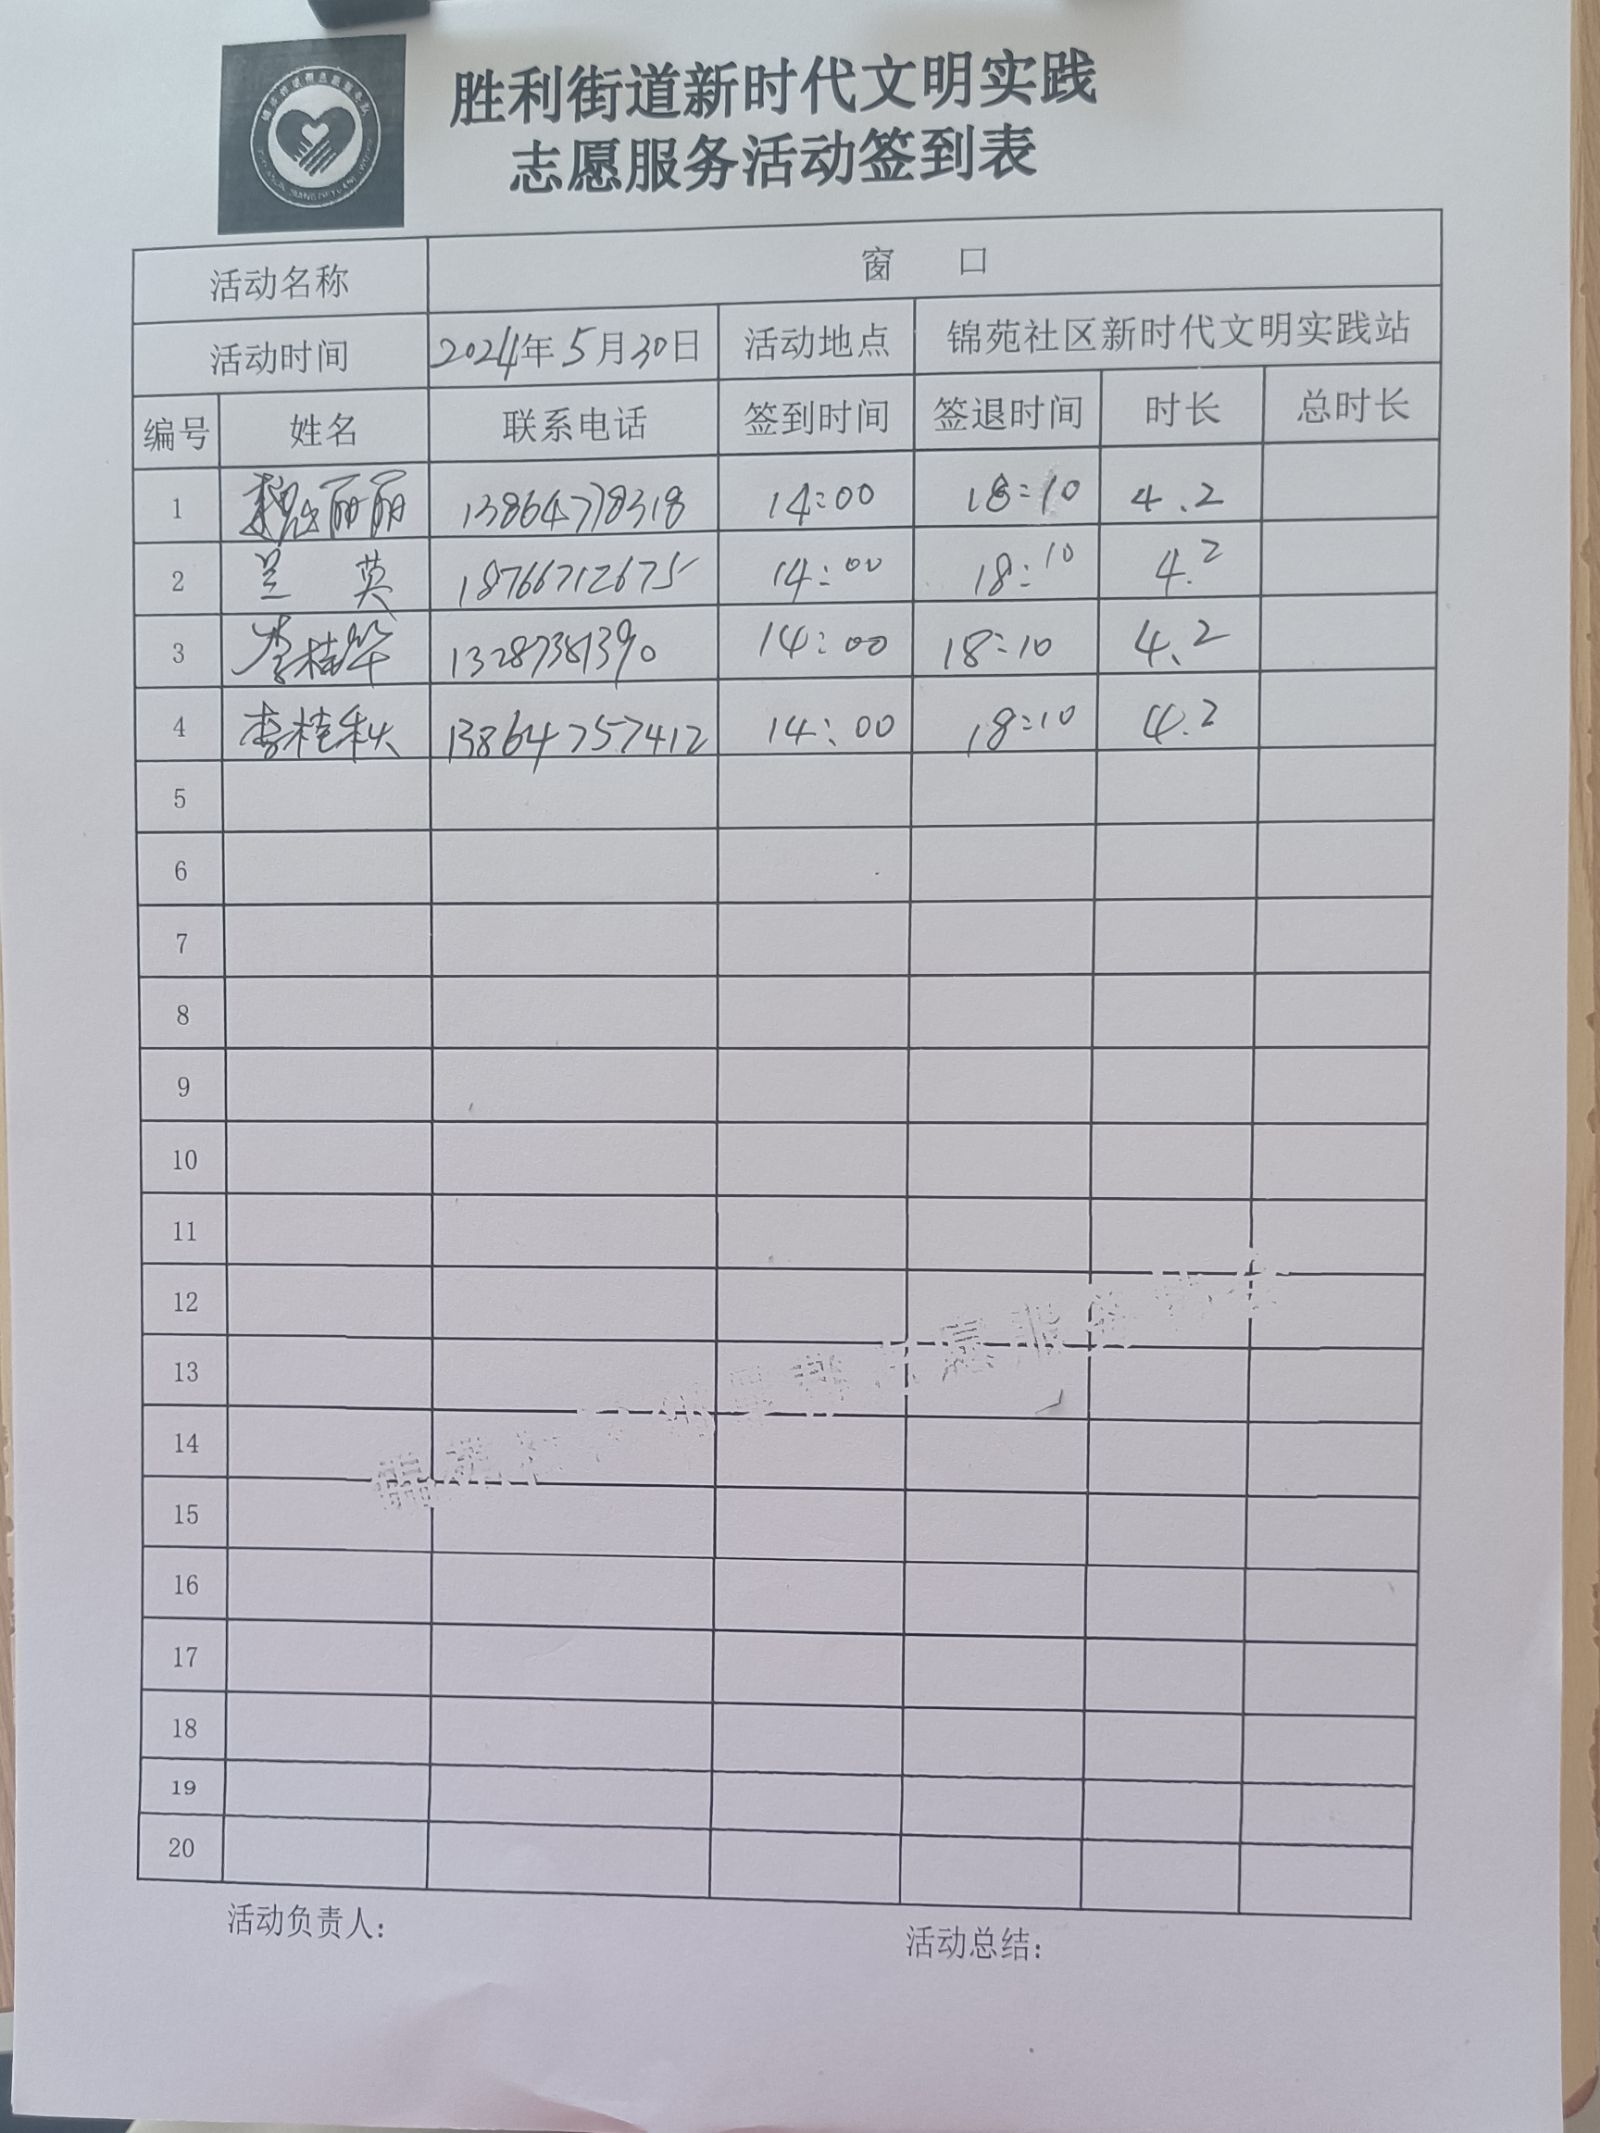 胜利街道新时代文明实践
志愿服务活动签到表
活动名称 窗 口
活动时间 2024年5月30日 活动地点 锦苑社区新时代文明实践站
编号 姓名 联系电话 签到时间 签退时间 时长 总时长
1 魏丽丽 13864778318 14:00 18:10 4.2
2 兰 英 18766712675 14:00 18:10 4.2
3 李桂华 13287381390 14:00 18:10 4.2
4 李桂秋 13864757412 14:00 18:10 4.2
5
6
7
8
9
10
11
12
13
14
15
16
17
18
19
20
活动负责人:
活动总结: